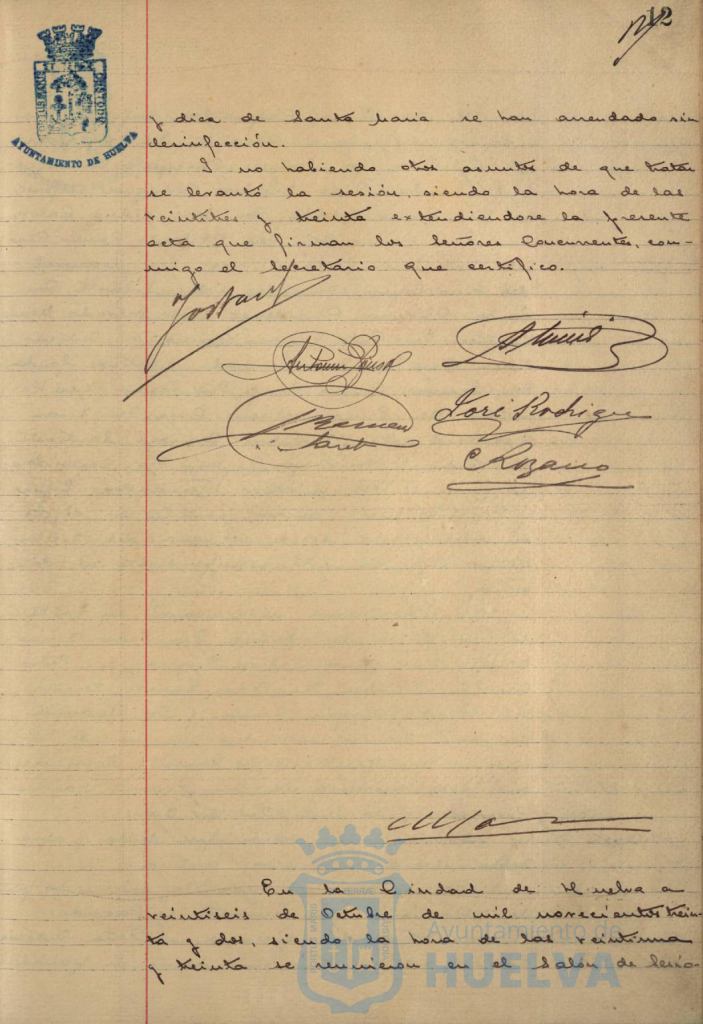 12
y dica de Santa Maria se han arrendado sin
desinfección.
Y no habiendo otros asuntos de que tratar
se levantó la sesión, siendo la hora de las
veintitres y treinta extendiendose la presente
acta que firman los Señores Concurrentes, con-
migo el Secretario que certifico.
AYUNTAMIENTO DE HUELVA
Antonio
José Rodrigue
En la Ciudad de Huelva a
veintiseis de Octubre de mil novecientos trein-
ta y dos, siendo la hora de las veintiuna
y treinta se reunieron en el Salón de Sesio-
Ayuntamiento de
HUELVA